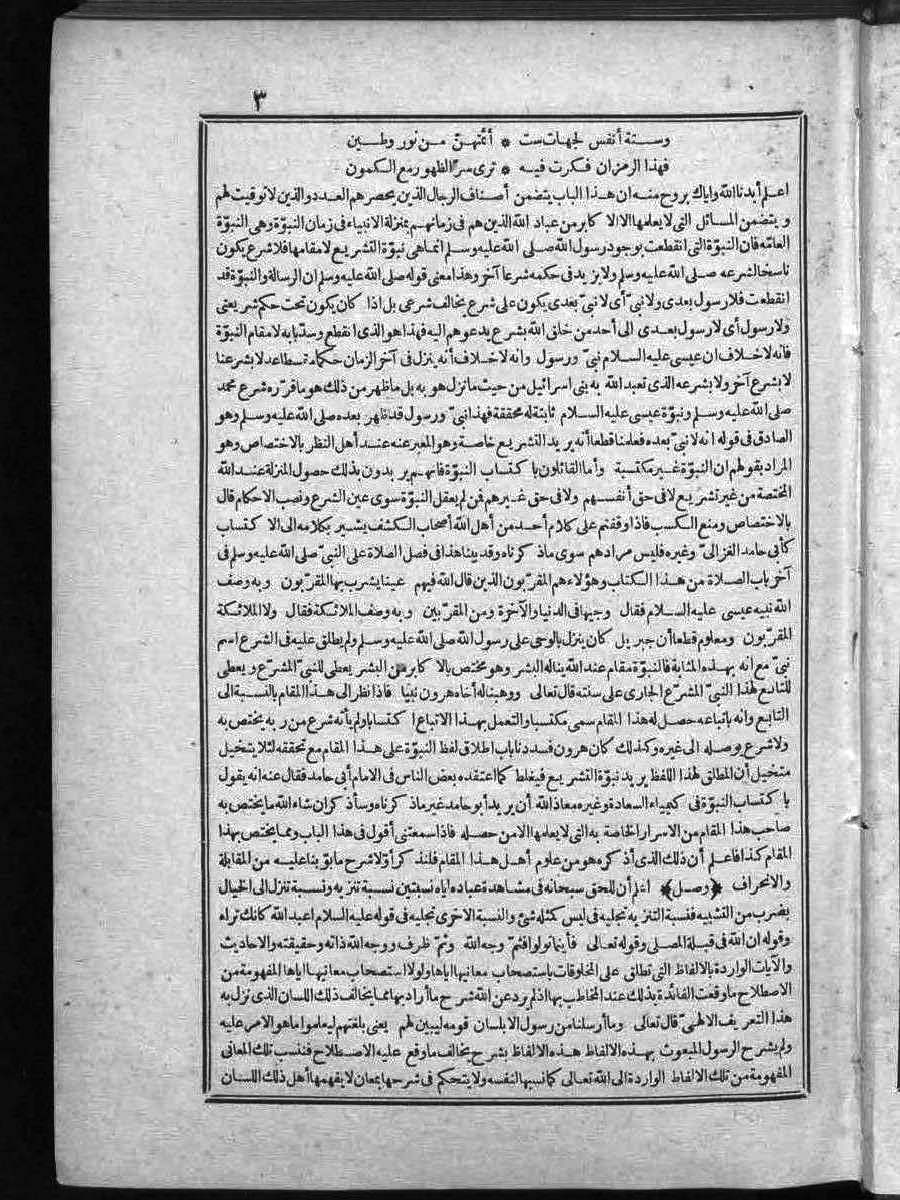 ٣
وستة أنفس لجهات ست * أئمتهنّ من نور وطين
فهذا الرمز ان فكرت فيه * ترى سرّ الظهور مع الكمون
اعلم أيدنا الله واياك بروح منه ان هذا الباب يتضمن أصناف الرجال الذين يحصرهم العدد والذين لا توقيت لهم
ويتضمن المسائل التي لا يعلمها الا الاكابر من عباد الله الذين هم في زمانهم بمنزلة الانبياء في زمان النبوّة وهى النبوّة
العامّة فان النبوّة التي انقطعت بوجود رسول الله صلى الله عليه وسلم انما هى نبوّة التشريع لا مقامها فلا شرع يكون
ناسخا لشرعه صلى الله عليه وسلم ولا يزيد في حكمه شرعا آخر وهذا معنى قوله صلى الله عليه وسلم ان الرسالة والنبوّة قد
انقطعت فلا رسول بعدى ولا نبىّ أى لا نبىّ بعدى يكون على شرع يخالف شرعى بل اذا كان يكون تحت حكم شريعتى
ولا رسول أى لا رسول بعدى الى أحد من خلق الله بشرع يدعوهم اليه فهذا هو الذى انقطع وسدّ بابه لا مقام النبوّة
فانه لا خلاف ان عيسى عليه السلام نبىّ ورسول وانه لا خلاف أنه ينزل في آخر الزمان حكما مقسطا عدلا بشرعنا
لا بشرع آخر ولا بشرعه الذى تعبد الله به بنى اسرائيل من حيث ما نزل هو به بل ما ظهر من ذلك هو ما قرّره شرع محمد
صلى الله عليه وسلم ونبوّة عيسى عليه السلام ثابتة له محققة فهذا نبىّ ورسول قد ظهر بعده صلى الله عليه وسلم وهو
الصادق في قوله انه لا نبىّ بعده فعلمنا قطعا أنه يريد التشريع خاصة وهو المعبر عنه عند أهل النظر بالاختصاص وهو
المراد بقولهم ان النبوّة غير مكتسبة وأما القائلون باكتساب النبوّة فانهم يريدون بذلك حصول المنزلة عند الله
المختصة من غير تشريع لا في حق أنفسهم ولا في حق غيرهم فمن لم يعقل النبوّة سوى عين الشرع ونصب الاحكام قال
بالاختصاص ومنع الكسب فاذا وقفتم على كلام أحد من أهل الله أصحاب الكشف يشير بكلامه الى الاكتساب
كأبى حامد الغزالىّ وغيره فليس مرادهم سوى ما ذكرناه وقد بينا هذا في فصل الصلاة على النبىّ صلى الله عليه وسلم في
آخر باب الصلاة من هذا الكتاب وهؤلاء هم المقرّبون الذين قال الله فيهم عينا يشرب بها المقرّبون وبه وصف
الله نبيه عيسى عليه السلام فقال وجيها في الدنيا والآخرة ومن المقرّبين وبه وصف الملائكة فقال ولا الملائكة
المقرّبون ومعلوم قطعا أن جبريل كان ينزل بالوحى على رسول الله صلى الله عليه وسلم ولم يطلق عليه في الشرع اسم
نبىّ مع انه بهذه المثابة فالنبوّة مقام عند الله يناله البشر وهو مختص بالاكابر من البشر يعطى للنبىّ المشرّع ويعطى
للتابع لهذا النبىّ المشرّع الجارى على سنته قال تعالى ووهبنا له أخاه هرون نبيا فاذا نظر الى هذا المقام بالنسبة الى
التابع وانه باتباعه حصل له هذا المقام سمى مكتسبا والتعمل بهذا الاتباع اكتسابا ولم يأته شرع من ربه يختص به
ولا شرع يوصله الى غيره وكذلك كان هرون فسددنا باب اطلاق لفظ النبوّة على هذا المقام مع تحققه لئلا يتخيل
متخيل أن المطلق لهذا اللفظ يريد نبوّة التشريع فيغلط كما اعتقده بعض الناس في الامام أبى حامد فقال عنه انه يقول
باكتساب النبوّة في كيمياء السعادة وغيره معاذ الله أن يريد أبو حامد غير ما ذكرناه وسأذكر ان شاء الله ما يختص به
صاحب هذا المقام من الاسرار الخاصة به التى لا يعلمها الا من حصله فاذا سمعتنى أقول في هذا الباب ومما يختص بهذا
المقام كذا فاعلم أن ذلك الذى أذكره هو من علوم أهل هذا المقام فلنذكر أوّلا شرح ما بوّبنا عليه من المقابلة
والانحراف ﴿وصل﴾ اعلم أن للحق سبحانه في مشاهدة عباده اياه نسبتين نسبة تنزيه ونسبة تنزل الى الخيال
بضرب من التشبيه فنسبة التنزيه تجليه في ليس كمثله شئ والنسبة الاخرى تجليه في قوله عليه السلام اعبد الله كانك تراه
وقوله ان الله في قبلة المصلى وقوله تعالى فأينما تولوا فثمّ وجه الله وثمّ ظرف ووجه الله ذاته وحقيقته والاحاديث
والآيات الواردة بالالفاظ التى تطلق على المخلوقات باستصحاب معانيها اياها ولولا استصحاب معانيها اياها المفهومة من
الاصطلاح ما وقعت الفائدة بذلك عند المخاطب بها اذ لم يرد عن الله شرح ما أراد بها مما يخالف ذلك اللسان الذى نزل به
هذا التعريف الالهىّ قال تعالى وما أرسلنا من رسول الا بلسان قومه ليبين لهم يعنى بلغتهم ليعلموا ما هو الامر عليه
ولم يشرح الرسول المبعوث بهذه الالفاظ هذه الالفاظ بشرح يخالف ما وقع عليه الاصطلاح فننسب تلك المعانى
المفهومة من تلك الالفاظ الواردة الى الله تعالى كما نسبها لنفسه ولا يتحكم في شرحها بمعان لا يفهمها أهل ذلك اللسان